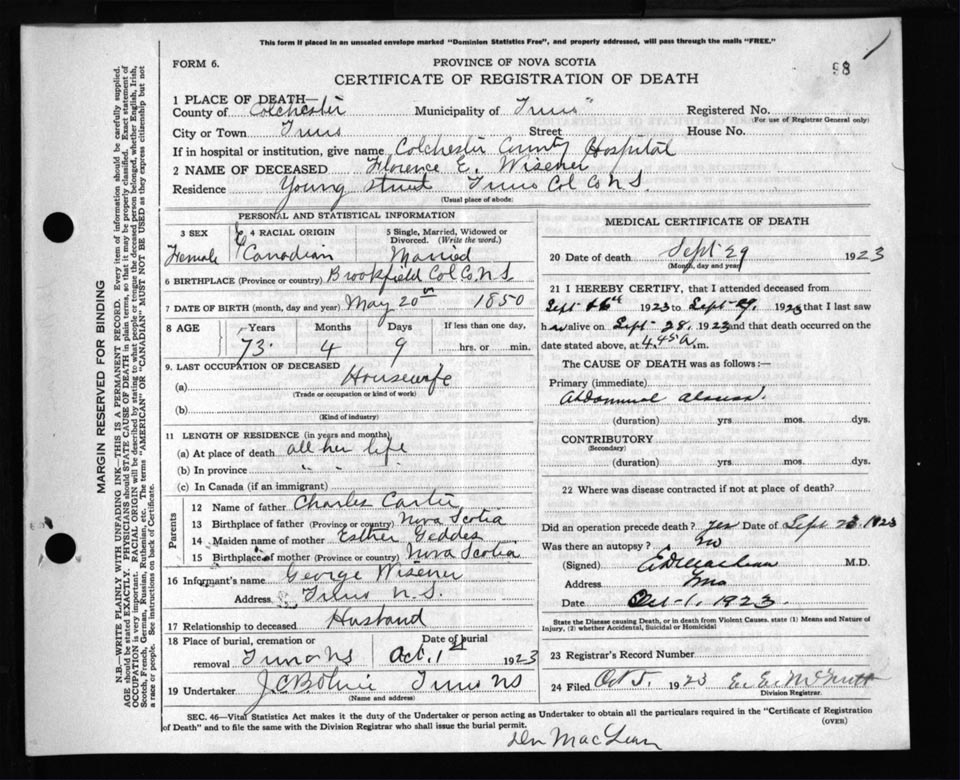 This form if placed in an unsealed envelope marked "Dominion Statistics Free", and properly addressed, will pass through the mails "FREE."
98
FORM 6.
PROVINCE OF NOVA SCOTIA
CERTIFICATE OF REGISTRATION OF DEATH
1 PLACE OF DEATH—
County of Colchester Municipality of Truro Registered No.
(For use of Registrar General only)
City or Town Truro Street House No.
If in hospital or institution, give name Colchester County Hospital
2 NAME OF DECEASED Florence E. Wisener
Residence Young Street Truro Col Co N S.
(Usual place of abode)
PERSONAL AND STATISTICAL INFORMATION
3 SEX 4 RACIAL ORIGIN 5 Single, Married, Widowed or Divorced. (Write the word.)
Female Canadian Married
6 BIRTHPLACE (Province or country) Brookfield Col Co N S
7 DATE OF BIRTH (month, day and year) May 20th 1850
8 AGE Years Months Days If less than one day,
73 4 9 hrs. or min.
9. LAST OCCUPATION OF DECEASED
(a) Housewife
(Trade or occupation or kind of work)
(b)
(Kind of industry)
11 LENGTH OF RESIDENCE (in years and months)
(a) At place of death all her life
(b) In province " " "
(c) In Canada (if an immigrant)
Parents
12 Name of father Charles Carter
13 Birthplace of father (Province or country) Nova Scotia
14 Maiden name of mother Esther Geddes
15 Birthplace of mother (Province or country) Nova Scotia
16 Informant's name George Wisener
Address Truro N.S.
17 Relationship to deceased Husband
18 Place of burial, cremation or removal Truro N S
Date of burial Oct. 1st 1923
19 Undertaker Truro N S
(Name and address)
MEDICAL CERTIFICATE OF DEATH
20 Date of death Sept 29 1923
(Month, day and year)
21 I HEREBY CERTIFY, that I attended deceased from
Sept 1923 to Sept 29, 1923 that I last saw
her alive on Sept 28, 1923 and that death occurred on the
date stated above, at 4.45 a.m.
The CAUSE OF DEATH was as follows:—
Primary (immediate)
Abdominal abscess.
(duration) yrs. mos. dys.
CONTRIBUTORY
(Secondary)
(duration) yrs. mos. dys.
22 Where was disease contracted if not at place of death?
Did an operation precede death? yes Date of Sept 1923
Was there an autopsy? No
(Signed) M.D.
Address
Date Oct-1, 1923.
State the Disease causing Death, or in death from Violent Causes. state (1) Means and Nature of Injury, (2) whether Accidental, Suicidal or Homicidal
23 Registrar's Record Number
24 Filed Oct 5. 1923
Division Registrar.
SEC. 46—Vital Statistics Act makes it the duty of the Undertaker or person acting as Undertaker to obtain all the particulars required in the "Certificate of Registration
of Death" and to file the same with the Division Registrar who shall issue the burial permit.
(OVER)
MacLean
MARGIN RESERVED FOR BINDING
N.B.—WRITE PLAINLY WITH UNFADING INK—THIS IS A PERMANENT RECORD. Every item of information should be carefully supplied.
AGE should be stated EXACTLY. PHYSICIANS should STATE CAUSE OF DEATH in plain terms, so that it may be properly classified. Exact statement of
OCCUPATION is very important. RACIAL ORIGIN will be described by stating to what people or tongue the deceased person belonged, whether English, Irish,
Scotch, French, German, Russian, Ruthenian, etc. The terms "AMERICAN" or "CANADIAN" MUST NOT BE USED as they express citizenship but not
a race or people. See instructions on back of Certificate.